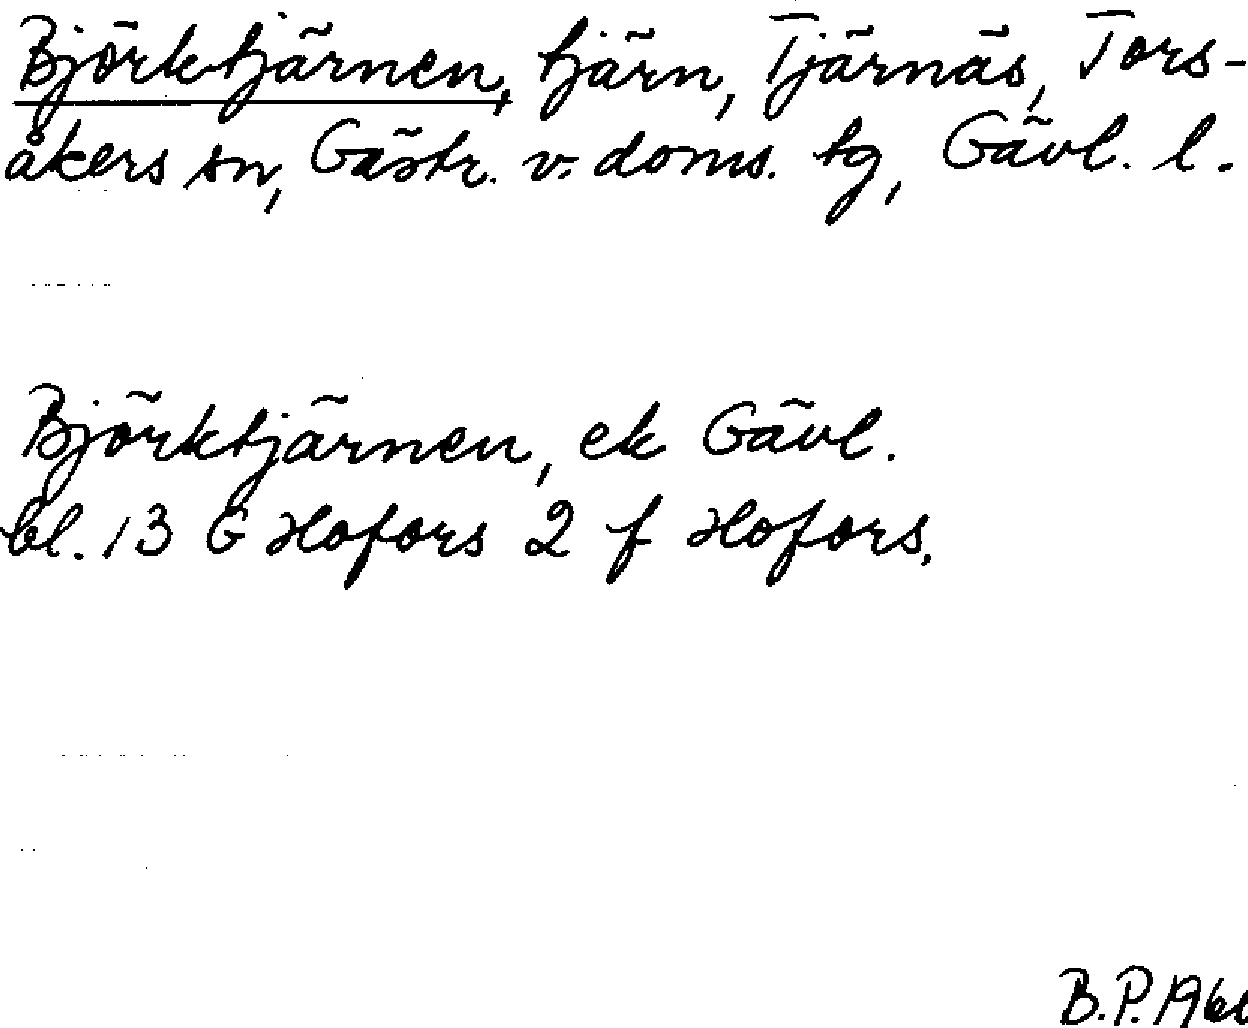 Björktjärnen, tjärn, Tjärnäs, Tors-
åkers sn, Gästr. v. doms. tg, Gävl. l.
Björktjärnen, ek Gävl.
bl. 13 G Hofors 2 f Hofors.
B.P.